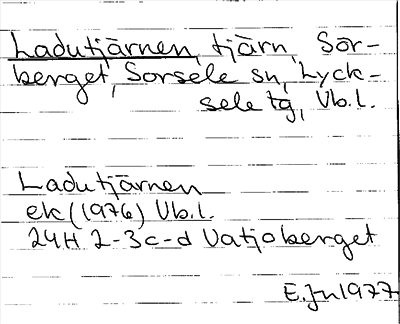 Ladutjärnen, tjärn, Sör-
berget, Sorsele sn, Lyck-
sele tg, Vb.l.
Ladutjärnen
ek (1976) Vb.l.
24H 2-3c-d Vatjoberget
E.Jn 1977